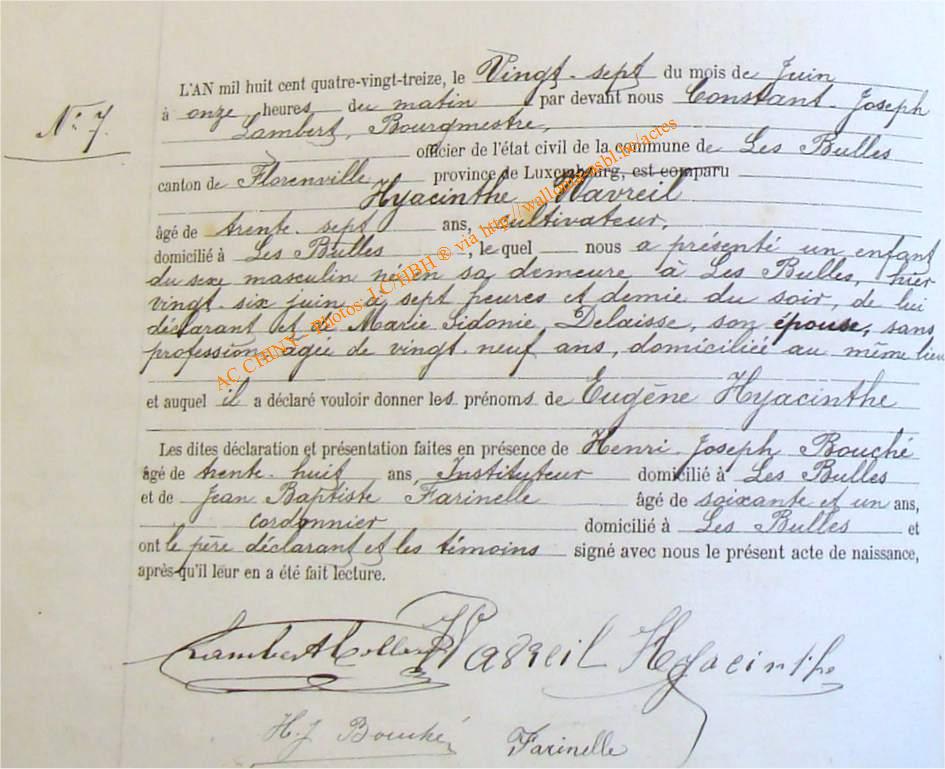 L'AN mil huit cent quatre-vingt-treize, le Vingt-sept du mois de Juin
N° 7.
à onze heures du matin, par devant nous Constant Joseph
Lambert, Bourgmestre,
officier de l'état civil de la commune de Les Bulles
canton de Florenville province de Luxembourg, est comparu
Hyacinthe Mavreil
âgé de trente-sept ans, cultivateur,
domicilié à Les Bulles, le quel nous a présenté un enfant
du sexe masculin né en sa demeure à Les Bulles, hier
vingt-six juin à sept heures et demie du soir, de lui
déclarant et de Marie Sidonie Delaisse, son épouse, sans
profession âgée de vingt-neuf ans, domiciliée au même lieu
et auquel il a déclaré vouloir donner les prénoms de Eugène Hyacinthe
Les dites déclaration et présentation faites en présence de Henri Joseph Bouché
âgé de trente-huit ans, Instituteur domicilié à Les Bulles
et de Jean Baptiste Farinelle âgé de soixante et un ans,
cordonnier domicilié à Les Bulles et
ont le père déclarant et les témoins signé avec nous le présent acte de naissance,
après qu'il leur en a été fait lecture.
Hyacinthe
H. J. Bouché Farinelle
AC CHINY - Photos: J.C/HBH ® via http://wallonia-asbl.be/actes